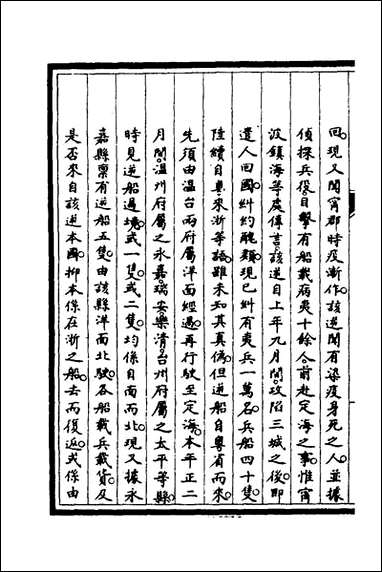 回現又聞甯郡時疫漸作該逆間有染疫身死之人並據
偵探兵役目擊有船載病夷十餘人前赴定海之事惟甯
波鎮海等處傳言該逆自上年九月間攻陷三城之後即
遣人回國糾約醜類現已糾有夷兵一萬名兵船四十隻
陸續自粵來浙等語雖未知其真偽但逆船自粵省而來
先須由溫台兩府屬洋面經過再行駛至定海本年正二
月間溫州府屬之永嘉瑞安樂清台州府屬之太平等縣
時見逆船過境或一隻或二隻均係自南而北現又據永
嘉縣稟有逆船五隻由該縣洋面北駛各船載兵載貨及
是否來自該逆本國抑本係在浙之船去而復返或係由